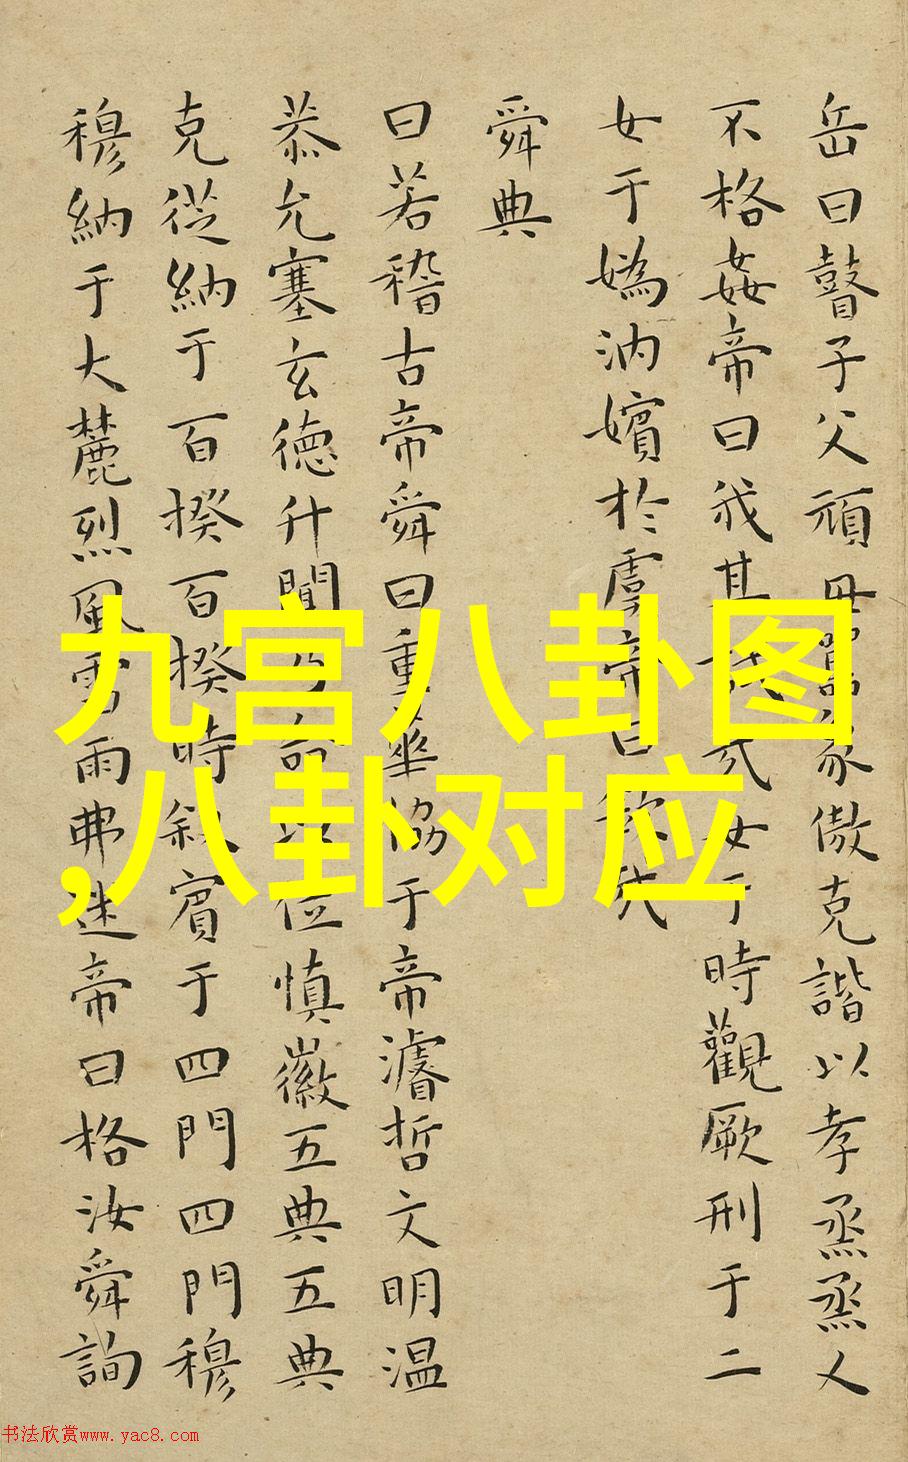 岳曰瞽子父頑母嚚象傲克諧以孝烝烝乂
不格姦帝曰我其試哉女于時觀厥刑于二
女于媯汭嬪於虞帝曰欽哉
舜典
曰若稽古帝舜曰重華協于帝濬哲文明温
恭允塞玄德升聞乃命以位慎徽五典五典
克從納于百揆百揆時叙賓于四門四門穆
穆納于大麓烈風雷雨弗迷帝曰格汝舜詢
九宫八卦图
,八卦对应
书法欣赏www.yac8.com